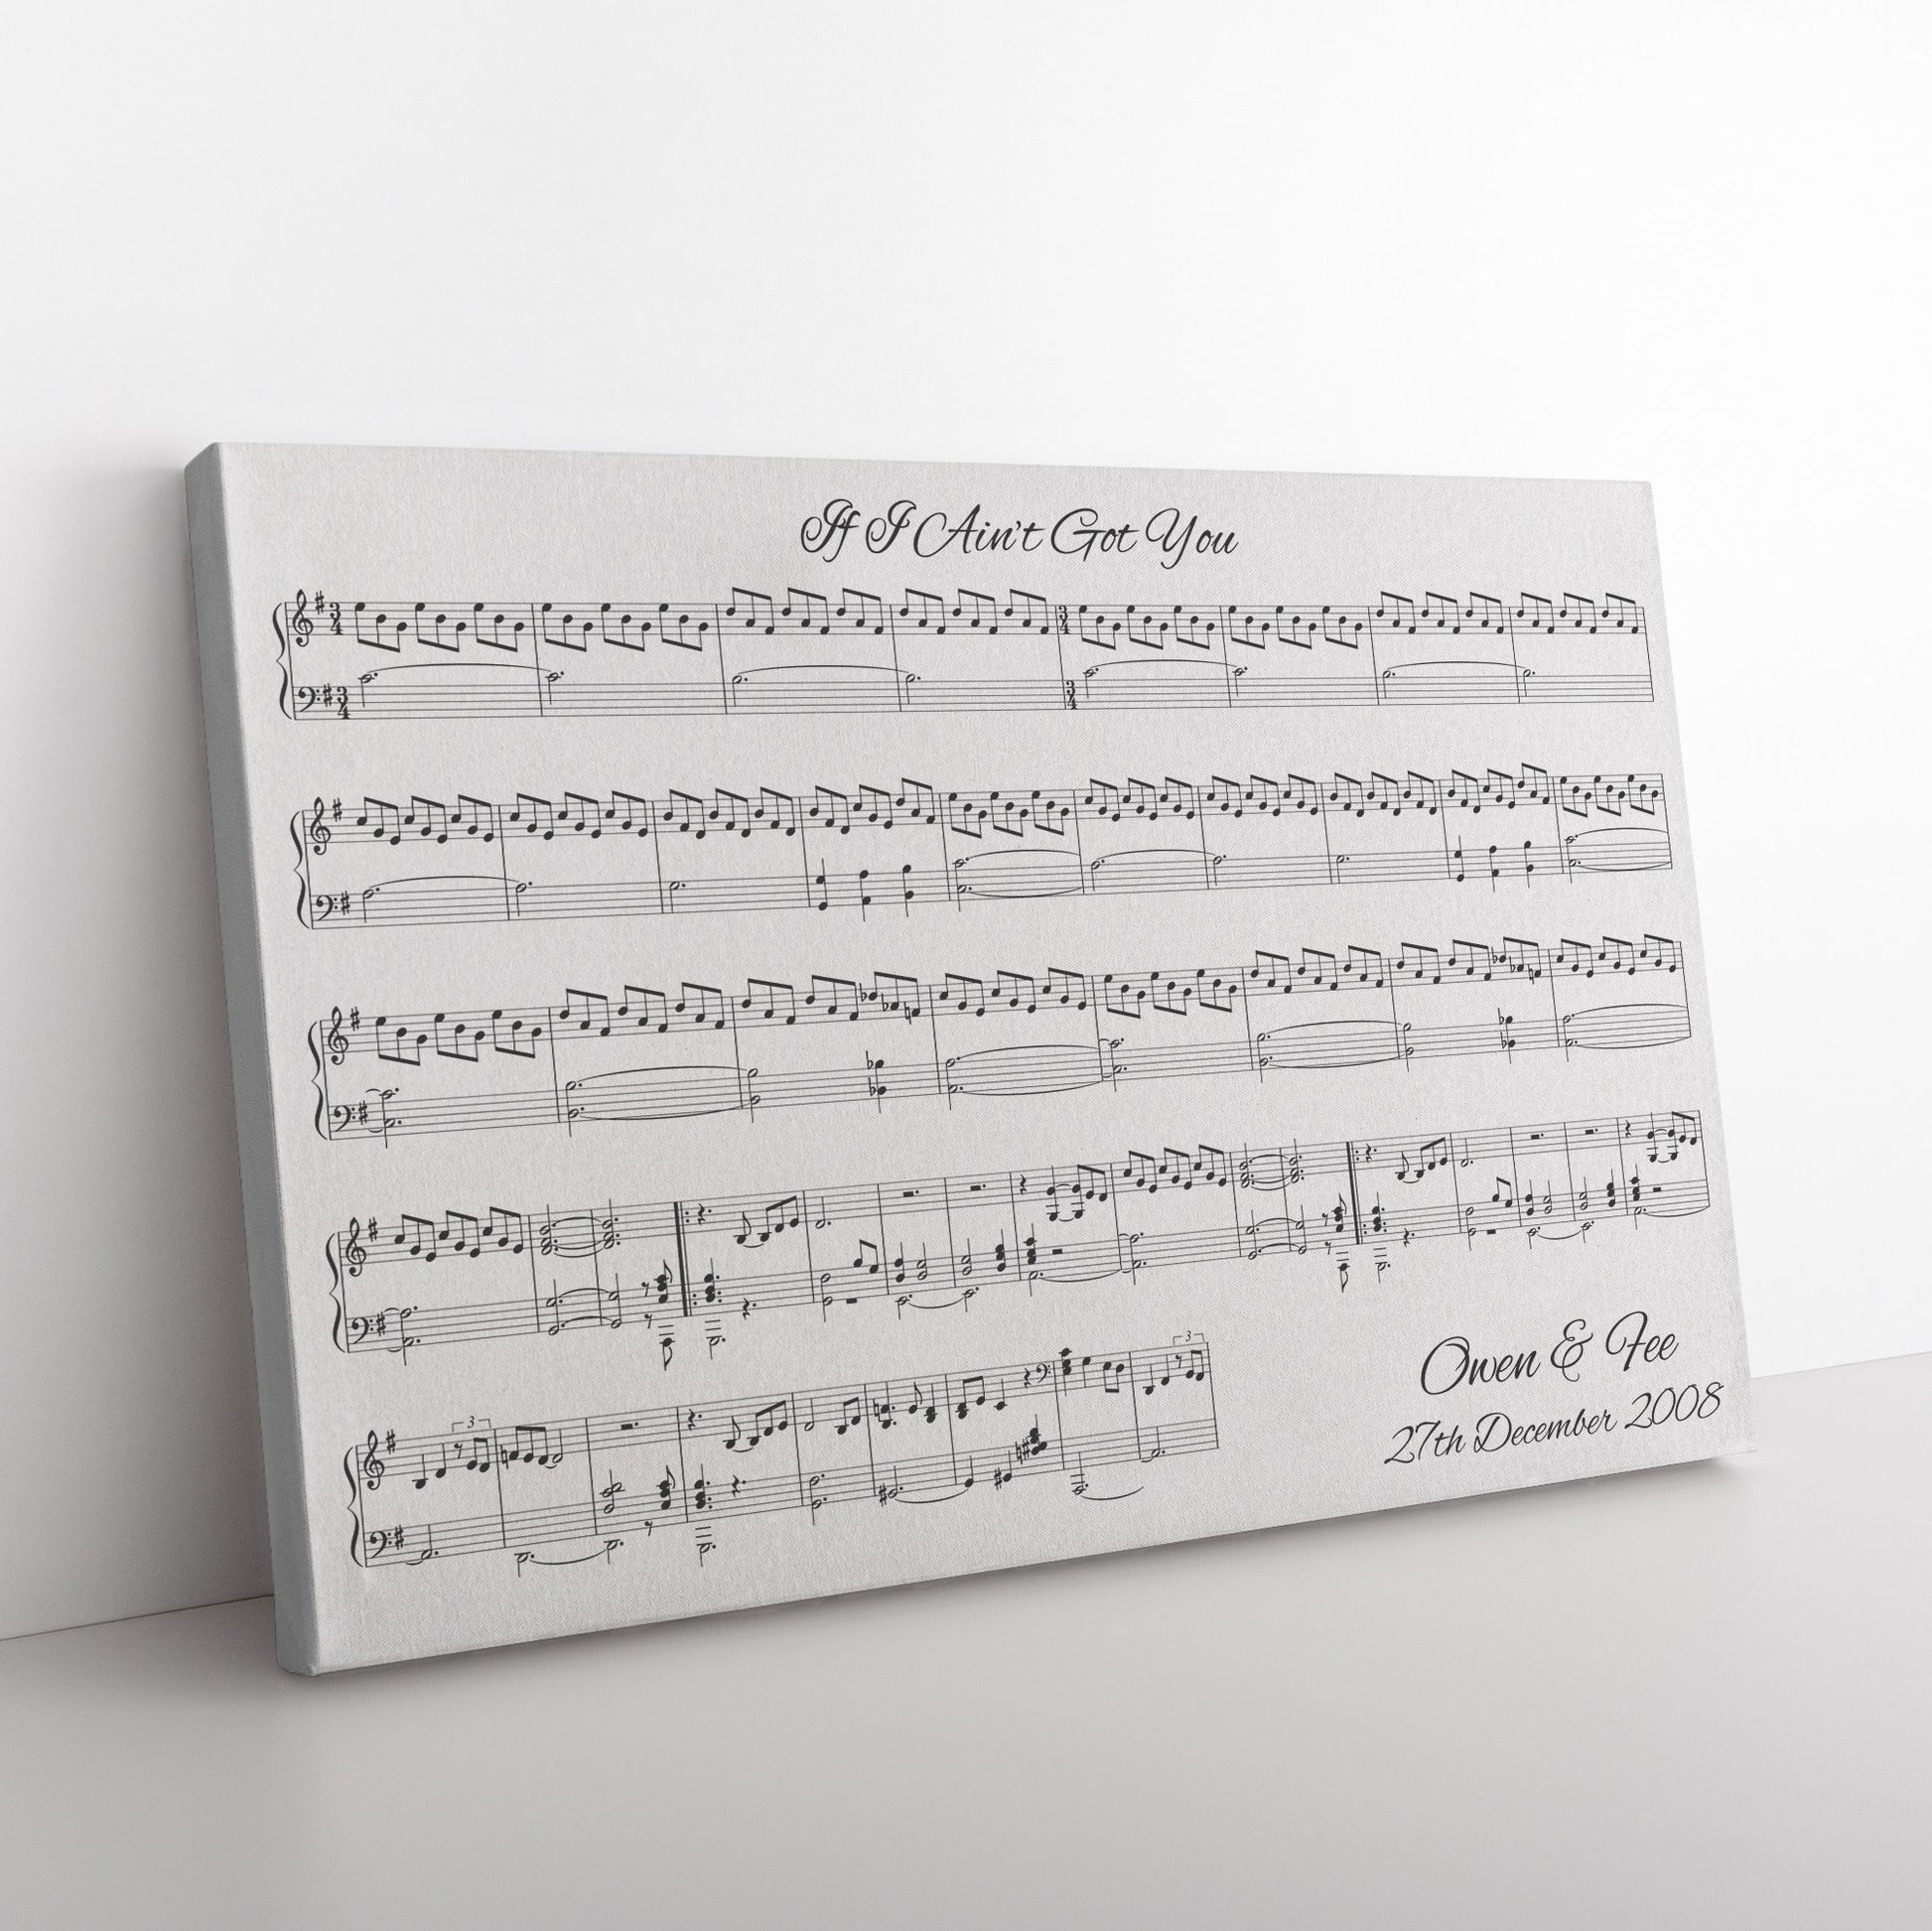 If I Ain't Got You
3
4
3
4
3
4
3
4
3
3
Owen & Fee
27th December 2008